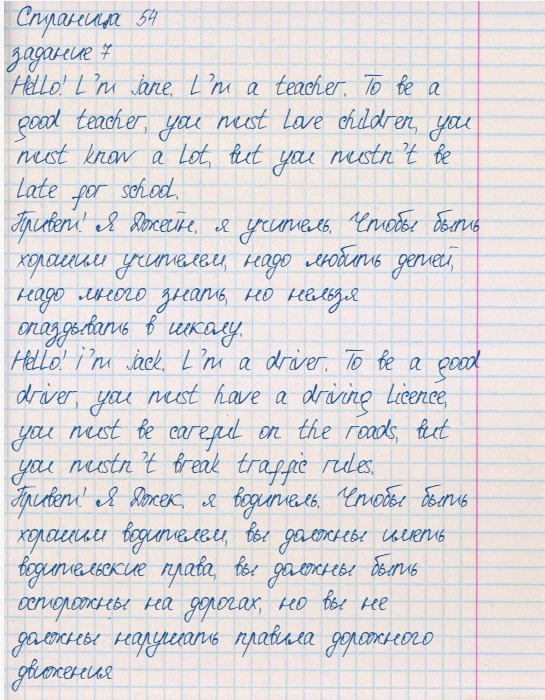 Страница 54
задание 7
Hello! I'm Jane. I'm a teacher. To be a
good teacher, you must love children, you
must know a lot, but you mustn't be
late for school.
Привет! Я Джейн, я учитель. Чтобы быть
хорошим учителем, надо любить детей,
надо много знать, но нельзя
опаздывать в школу.
Hello! i'm Jack. I'm a driver. To be a good
driver, you must have a driving licence,
you must be careful on the roads, but
you mustn't break traffic rules.
Привет! Я Джек, я водитель. Чтобы быть
хорошим водителем, вы должны иметь
водительские права, вы должны быть
осторожны на дорогах, но вы не
должны нарушать правила дорожного
движения